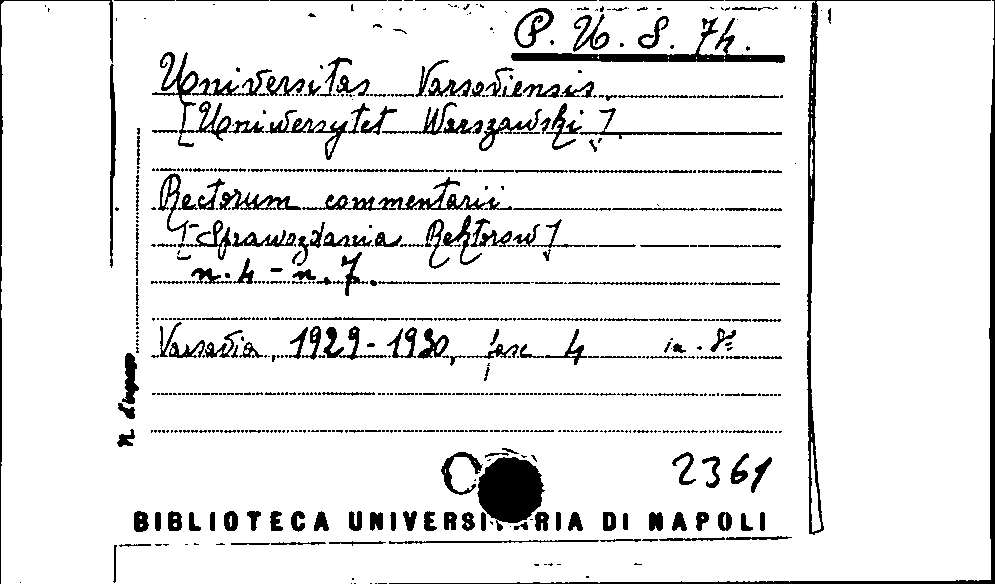 P. U. S. 74.
Universitas Varsaviensis.
[Uniwersytet Warszawski].
Rectorum commentarii.
[Sprawozdania Rektorow]
n. 4 - n. 7.
Varsavia, 1929-1930, fasc 4 in-8°
N. d'ingresso
2361
BIBLIOTECA UNIVERSITARIA DI NAPOLI